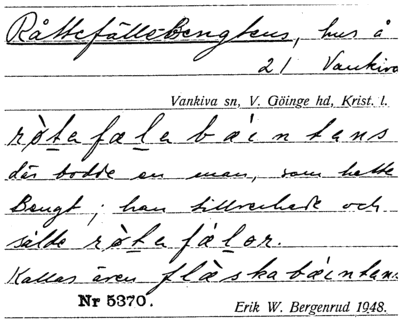 Råttefälle Bengtens, hus å
21 Vankiva
Vankiva sn, V. Göinge hd, Krist. l.
ròtafæ̀labáintans
där bodde en man, som hette
Bengt; han tillverkade och
sålde ròtafálor.
Kallas även flàskabáintans
Nr 5370. Erik W. Bergenrud 1948.